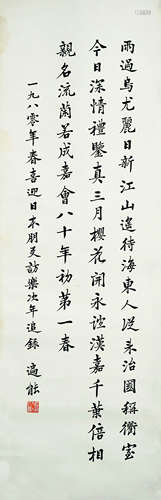 雨過烏尤麗日新江山遙待海東人從來治國稱衡室
今日深情禮鑒真三月櫻花開永誼漢嘉千葉倍相
親名流蘭若成嘉會八十年初第一春
一九八〇年春喜迎日本朋友訪樂次年追錄
遍能